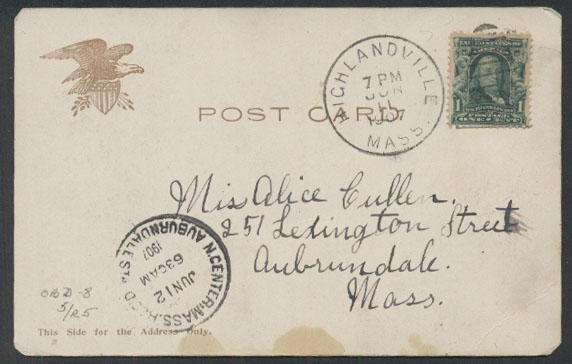 POST CARD
HIGHLANDVILLE
7 PM
JUN
11
1907
MASS.
1 POSTAGE 1
ONE CENT
Miss Alice Cullen.
251 Lexington Street
Aubrundale.
Mass.
N. CENTER, MASS. REC'D
AUBURNDALE STA.
JUN 12
630AM
1907
OBD-8
5/25
This Side for the Address Only.